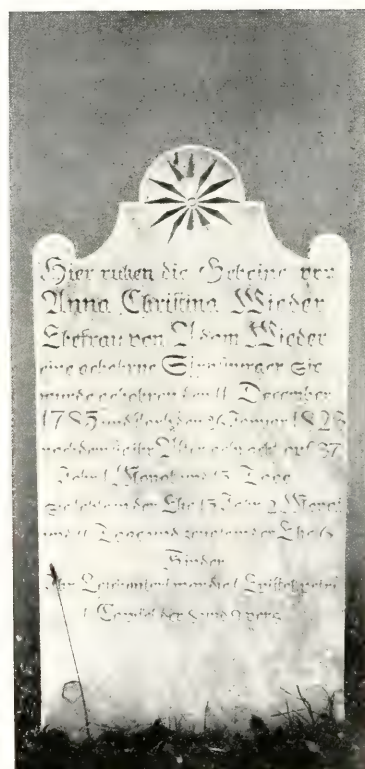 Hier ruhen die Gebeine von
Anna Christina Wieder
Ehefrau von Adam Wieder
eine gebohrne Sie
wurde gebohren den 11 December
1785 und starb den 26 Januar
nachdem sie ihr Alter gebracht auf 37
Jahr 1 Monat und 15 Tage
Sie lebte in der Ehe 15 Jahr 2 Monat
und 11 Tage und zeugte in der Ehe 6
Kinder
Ihr Leichentext war die 1 Epistel petri
1 Capitel der und 9 vers